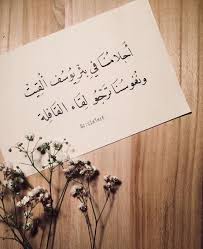 أَحْلَامُنَا فِي بِئْرِ يُوسُفَ أُلْقِيَتْ
وَنُفُوسُنَا تَرْجُو لِقَاءَ الْقَافِلَة